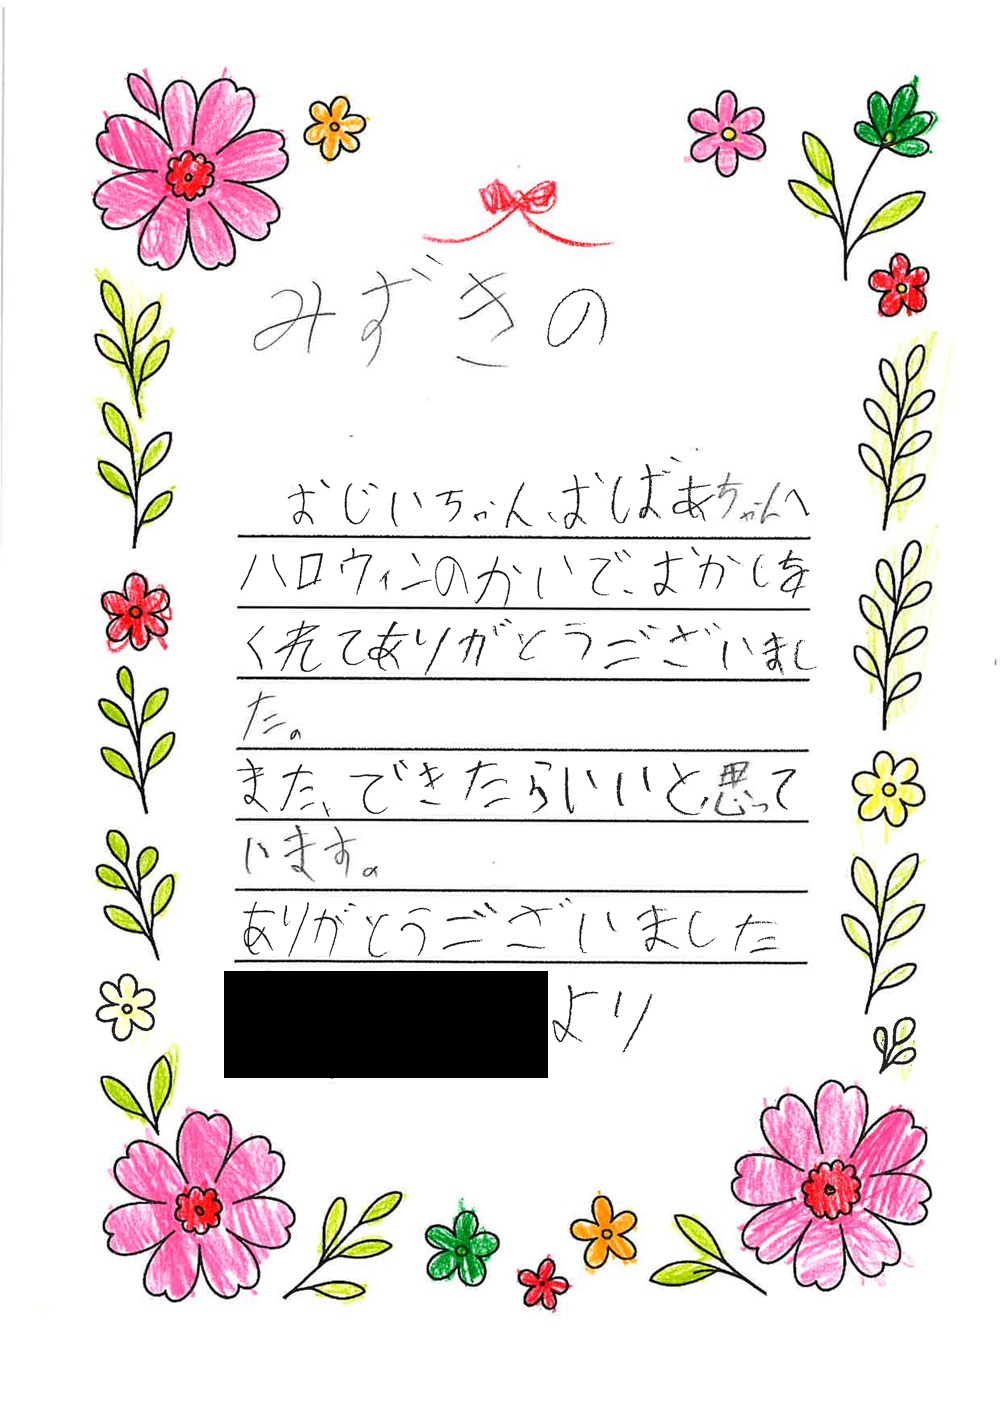 みずきの
おじいちゃん、おばあちゃんへ
ハロウィンのかいで、おかしを
くれてありがとうございまし
た。
また、できたらいいと思って
います。
ありがとうございました
より